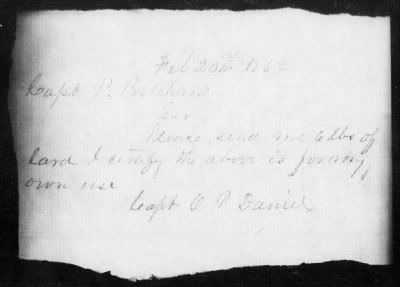 Feb 20th 1862
Capt P. Pritchard
Sir
Please send me 6 lbs of
lard I certify the above is for my
own use
Capt C P Daniel